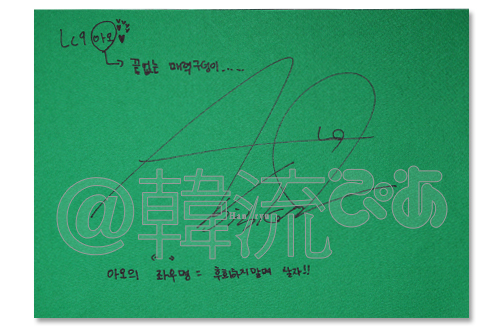 Lc9 아오
끝없는 매력구덩이.....
AO
L9
@韓流ぴあ
아오의 좌우명 = 후회하지말며 살자!!